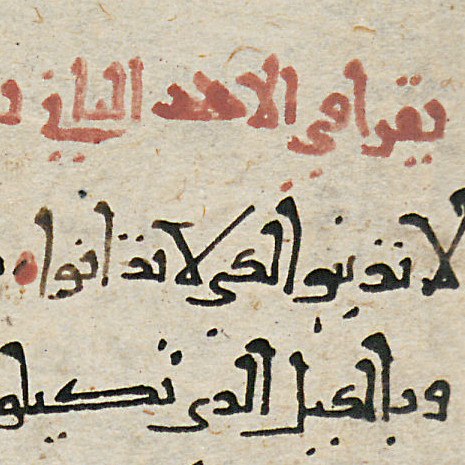 يقرا في الاحد الثاني
لا تدينوا لكي لا تدانوا
وبالكيل الذي تكيلو